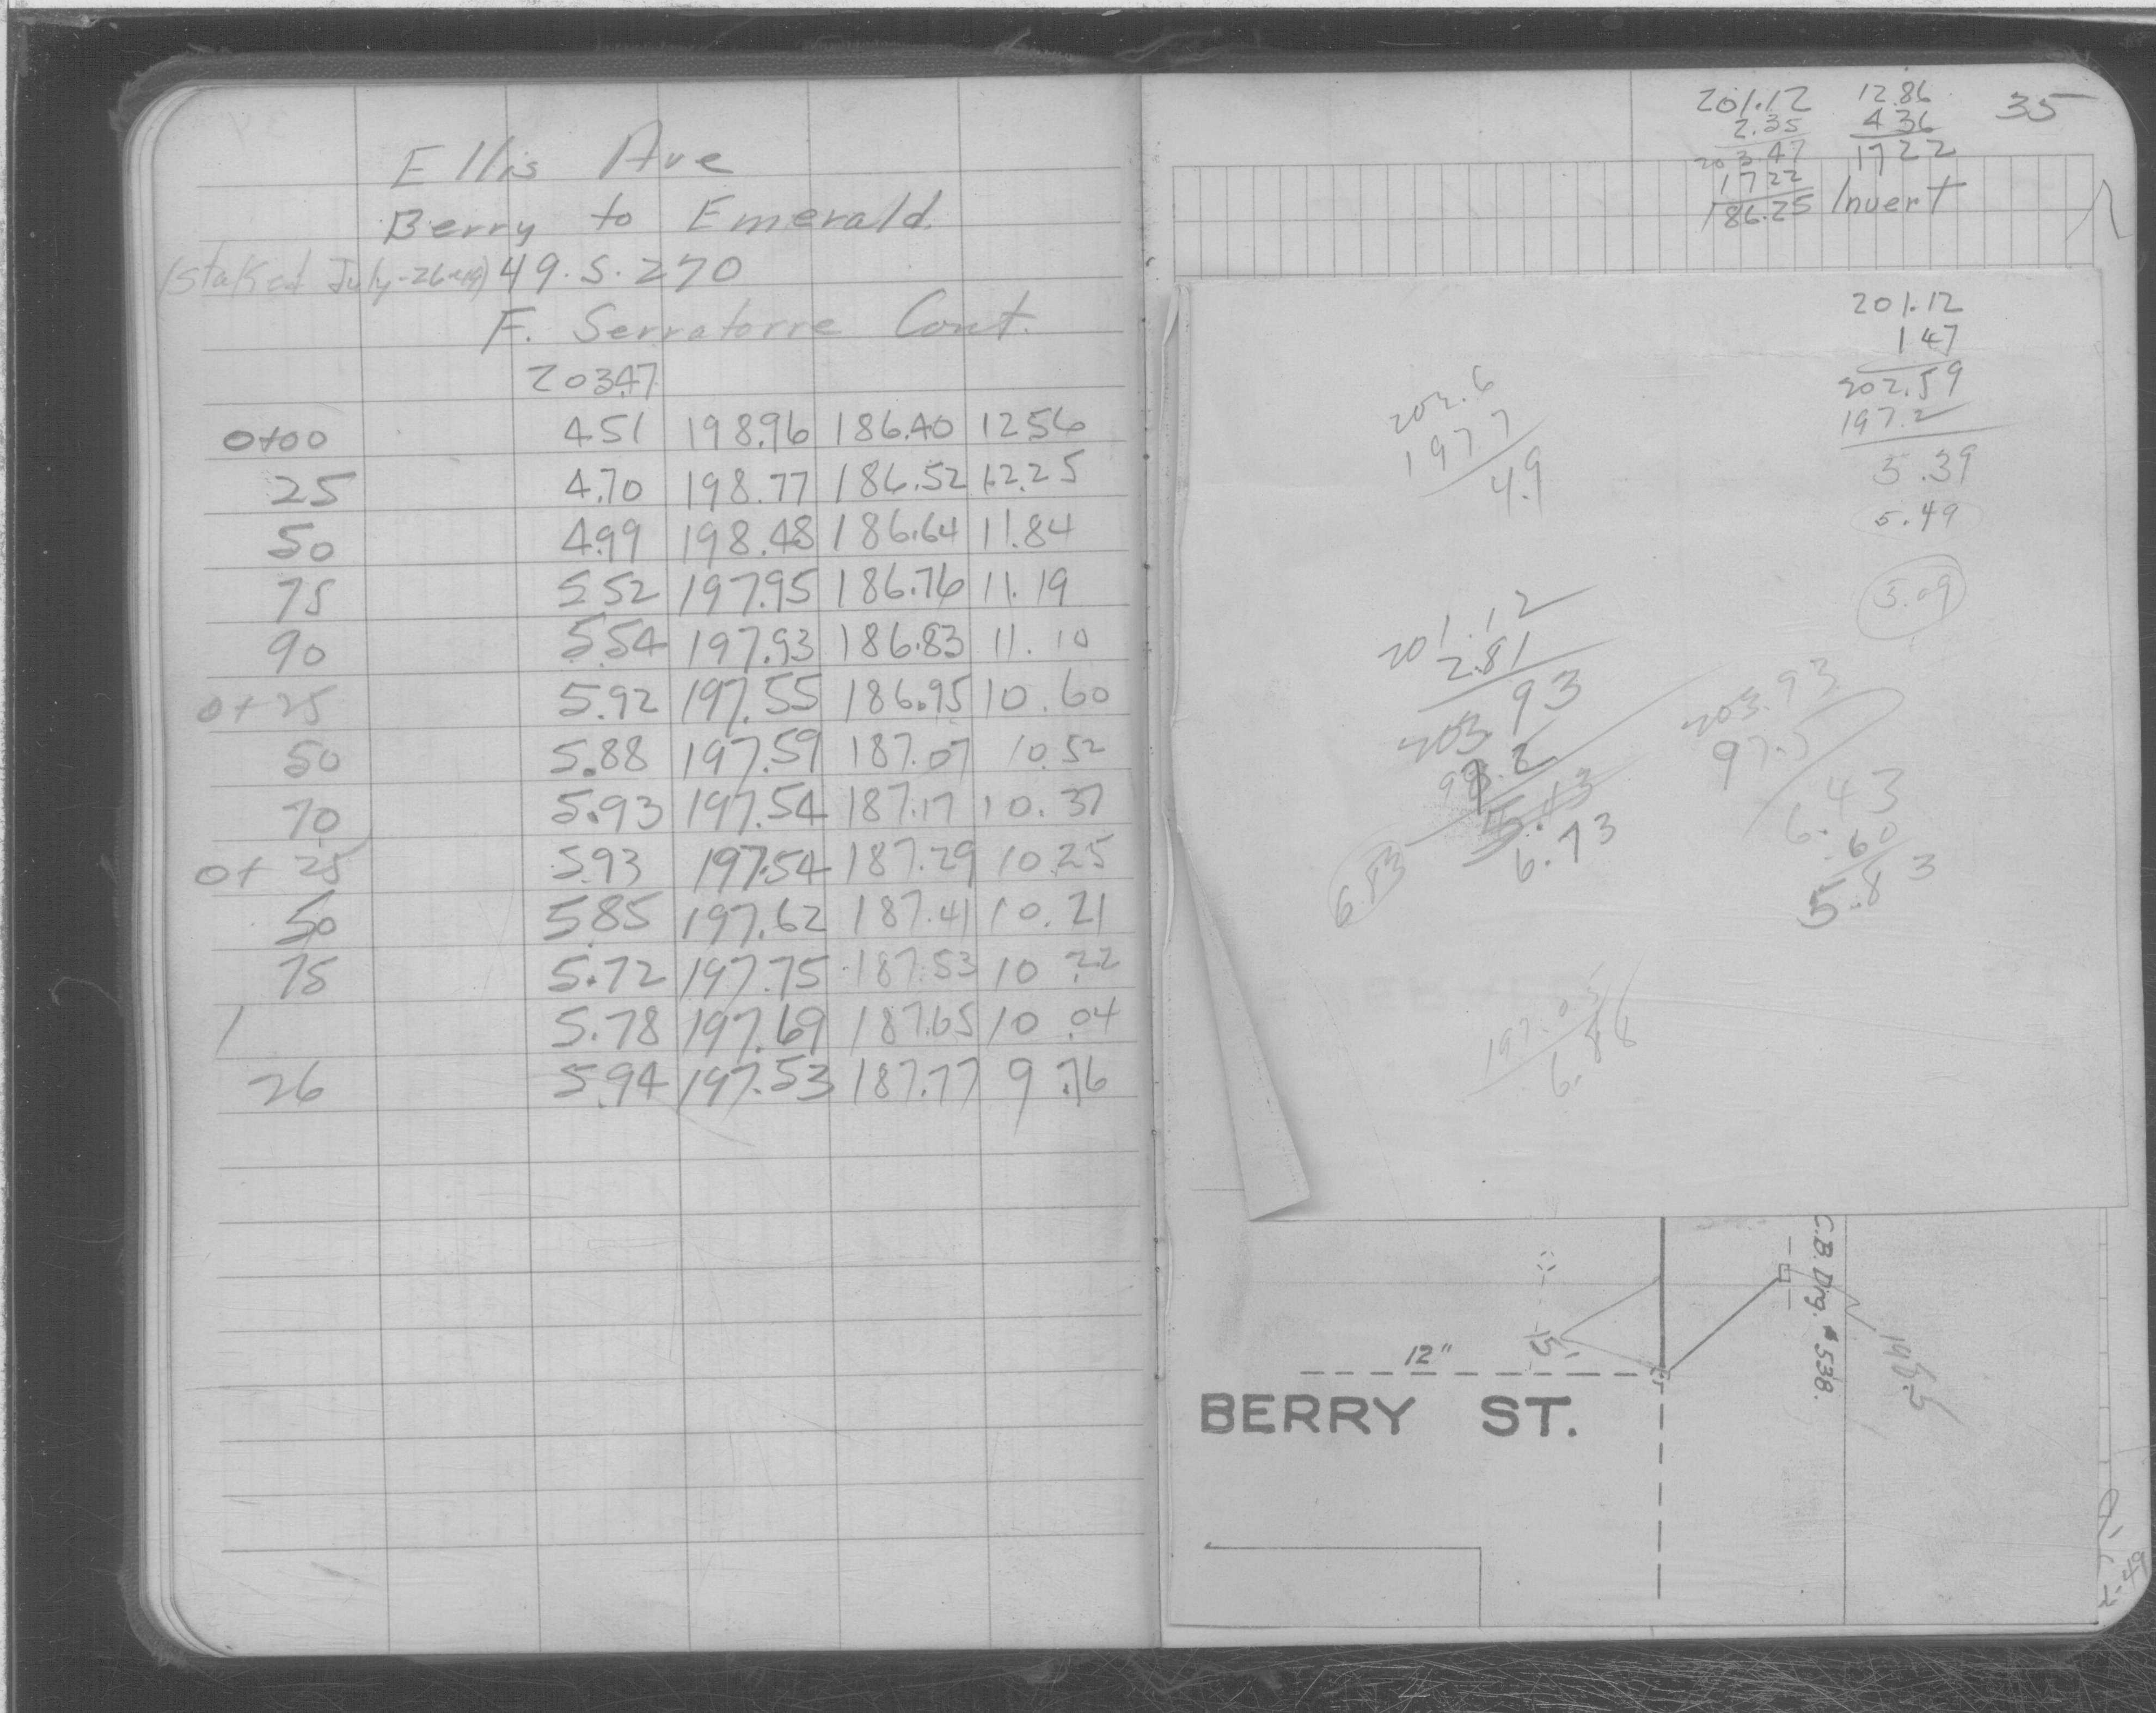 Ellis Ave
Berry to Emerald.
(Staked July-26-49) 49.S.270
F. Serratorre Cont.
203.47
0+00 4.51 198.96 186.40 12.56
25 4.70 198.77 186.52 12.25
50 4.99 198.48 186.64 11.84
75 5.52 197.95 186.76 11.19
90 5.54 197.93 186.83 11.10
0+25 5.92 197.55 186.95 10.60
50 5.88 197.59 187.07 10.52
70 5.93 197.54 187.17 10.37
0+25 5.93 197.54 187.29 10.25
50 5.85 197.62 187.41 10.21
75 5.72 197.75 187.53 10.22
1 5.78 197.69 187.65 10.04
26 5.94 197.53 187.77 9.76
35
201.12
2.35
203.47
17 22
186.25 Invert
12.86
4 36
17 22
201.12
1 47
202.59
197.2
5.39
5.49
5.09
202.6
197 7
4.9
201.12
2.81
203.93
6.73
6.83
203.93
97.5
6.43
.60
5.83
197.05
6.88
C.B. Drg. #538.
196.5
15
12"
BERRY ST.